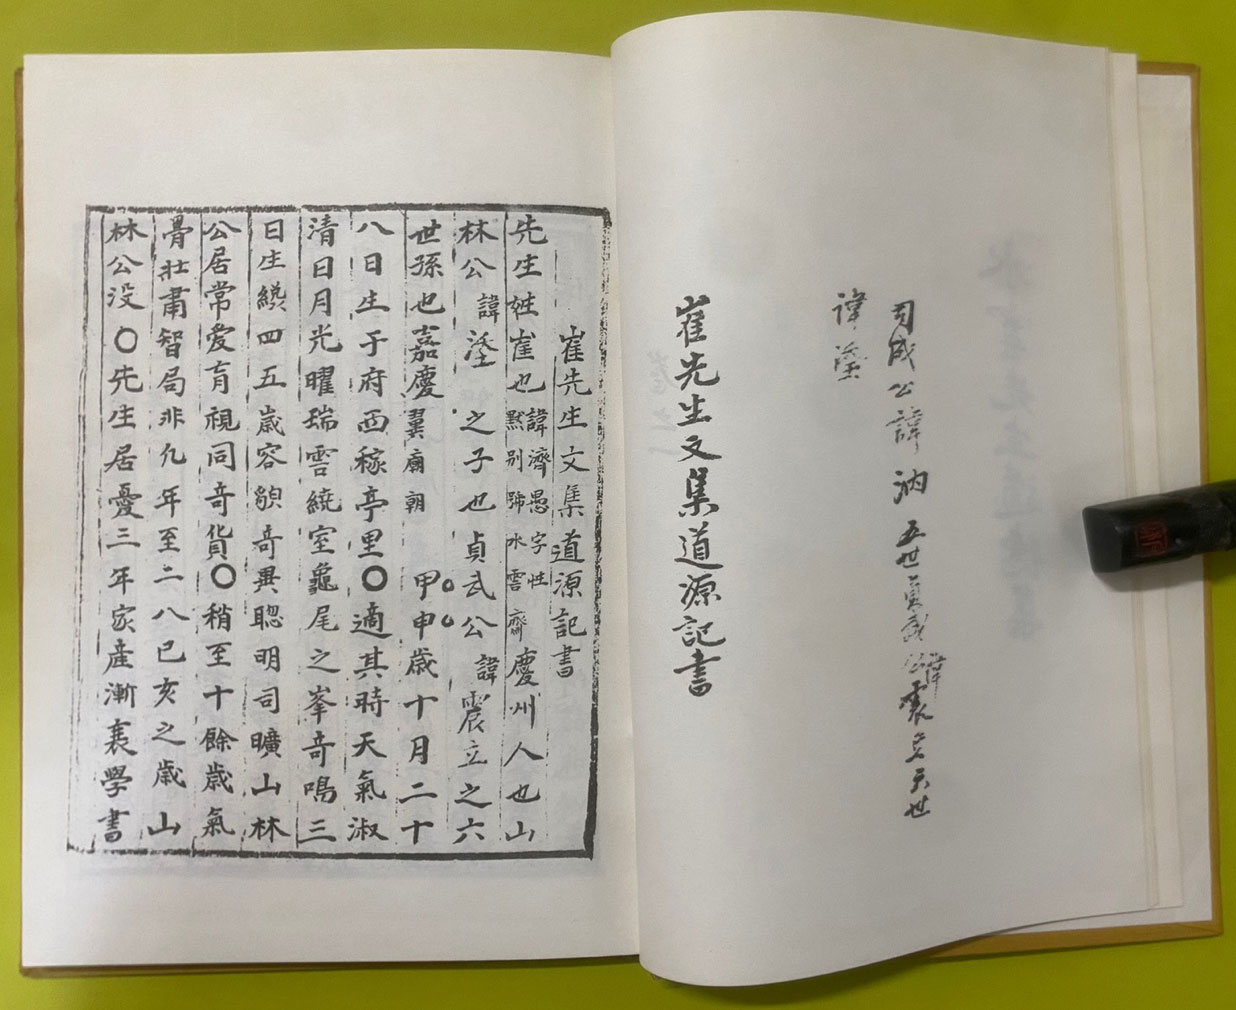 司成公諱汭五世貞武公諱震立六世
諱鋈
崔先生文集道源記書
崔先生文集道源記書
先生姓崔也諱濟愚字性默別號水雲齋慶州人也山
林公諱鋈之子也貞武公諱震立之六
世孫也嘉慶翼廟朝甲申歲十月二十
八日生于府西稼亭里〇適其時天氣淑
清日月光曜瑞雲繞室龜尾之峯奇鳴三
日生纔四五歲容貌奇異聰明司曠山林
公居常愛育視同奇貨〇稍至十餘歲氣
骨壯肅智局非凡年至二八已亥之歲山
林公没〇先生居憂三年家産漸衰學書